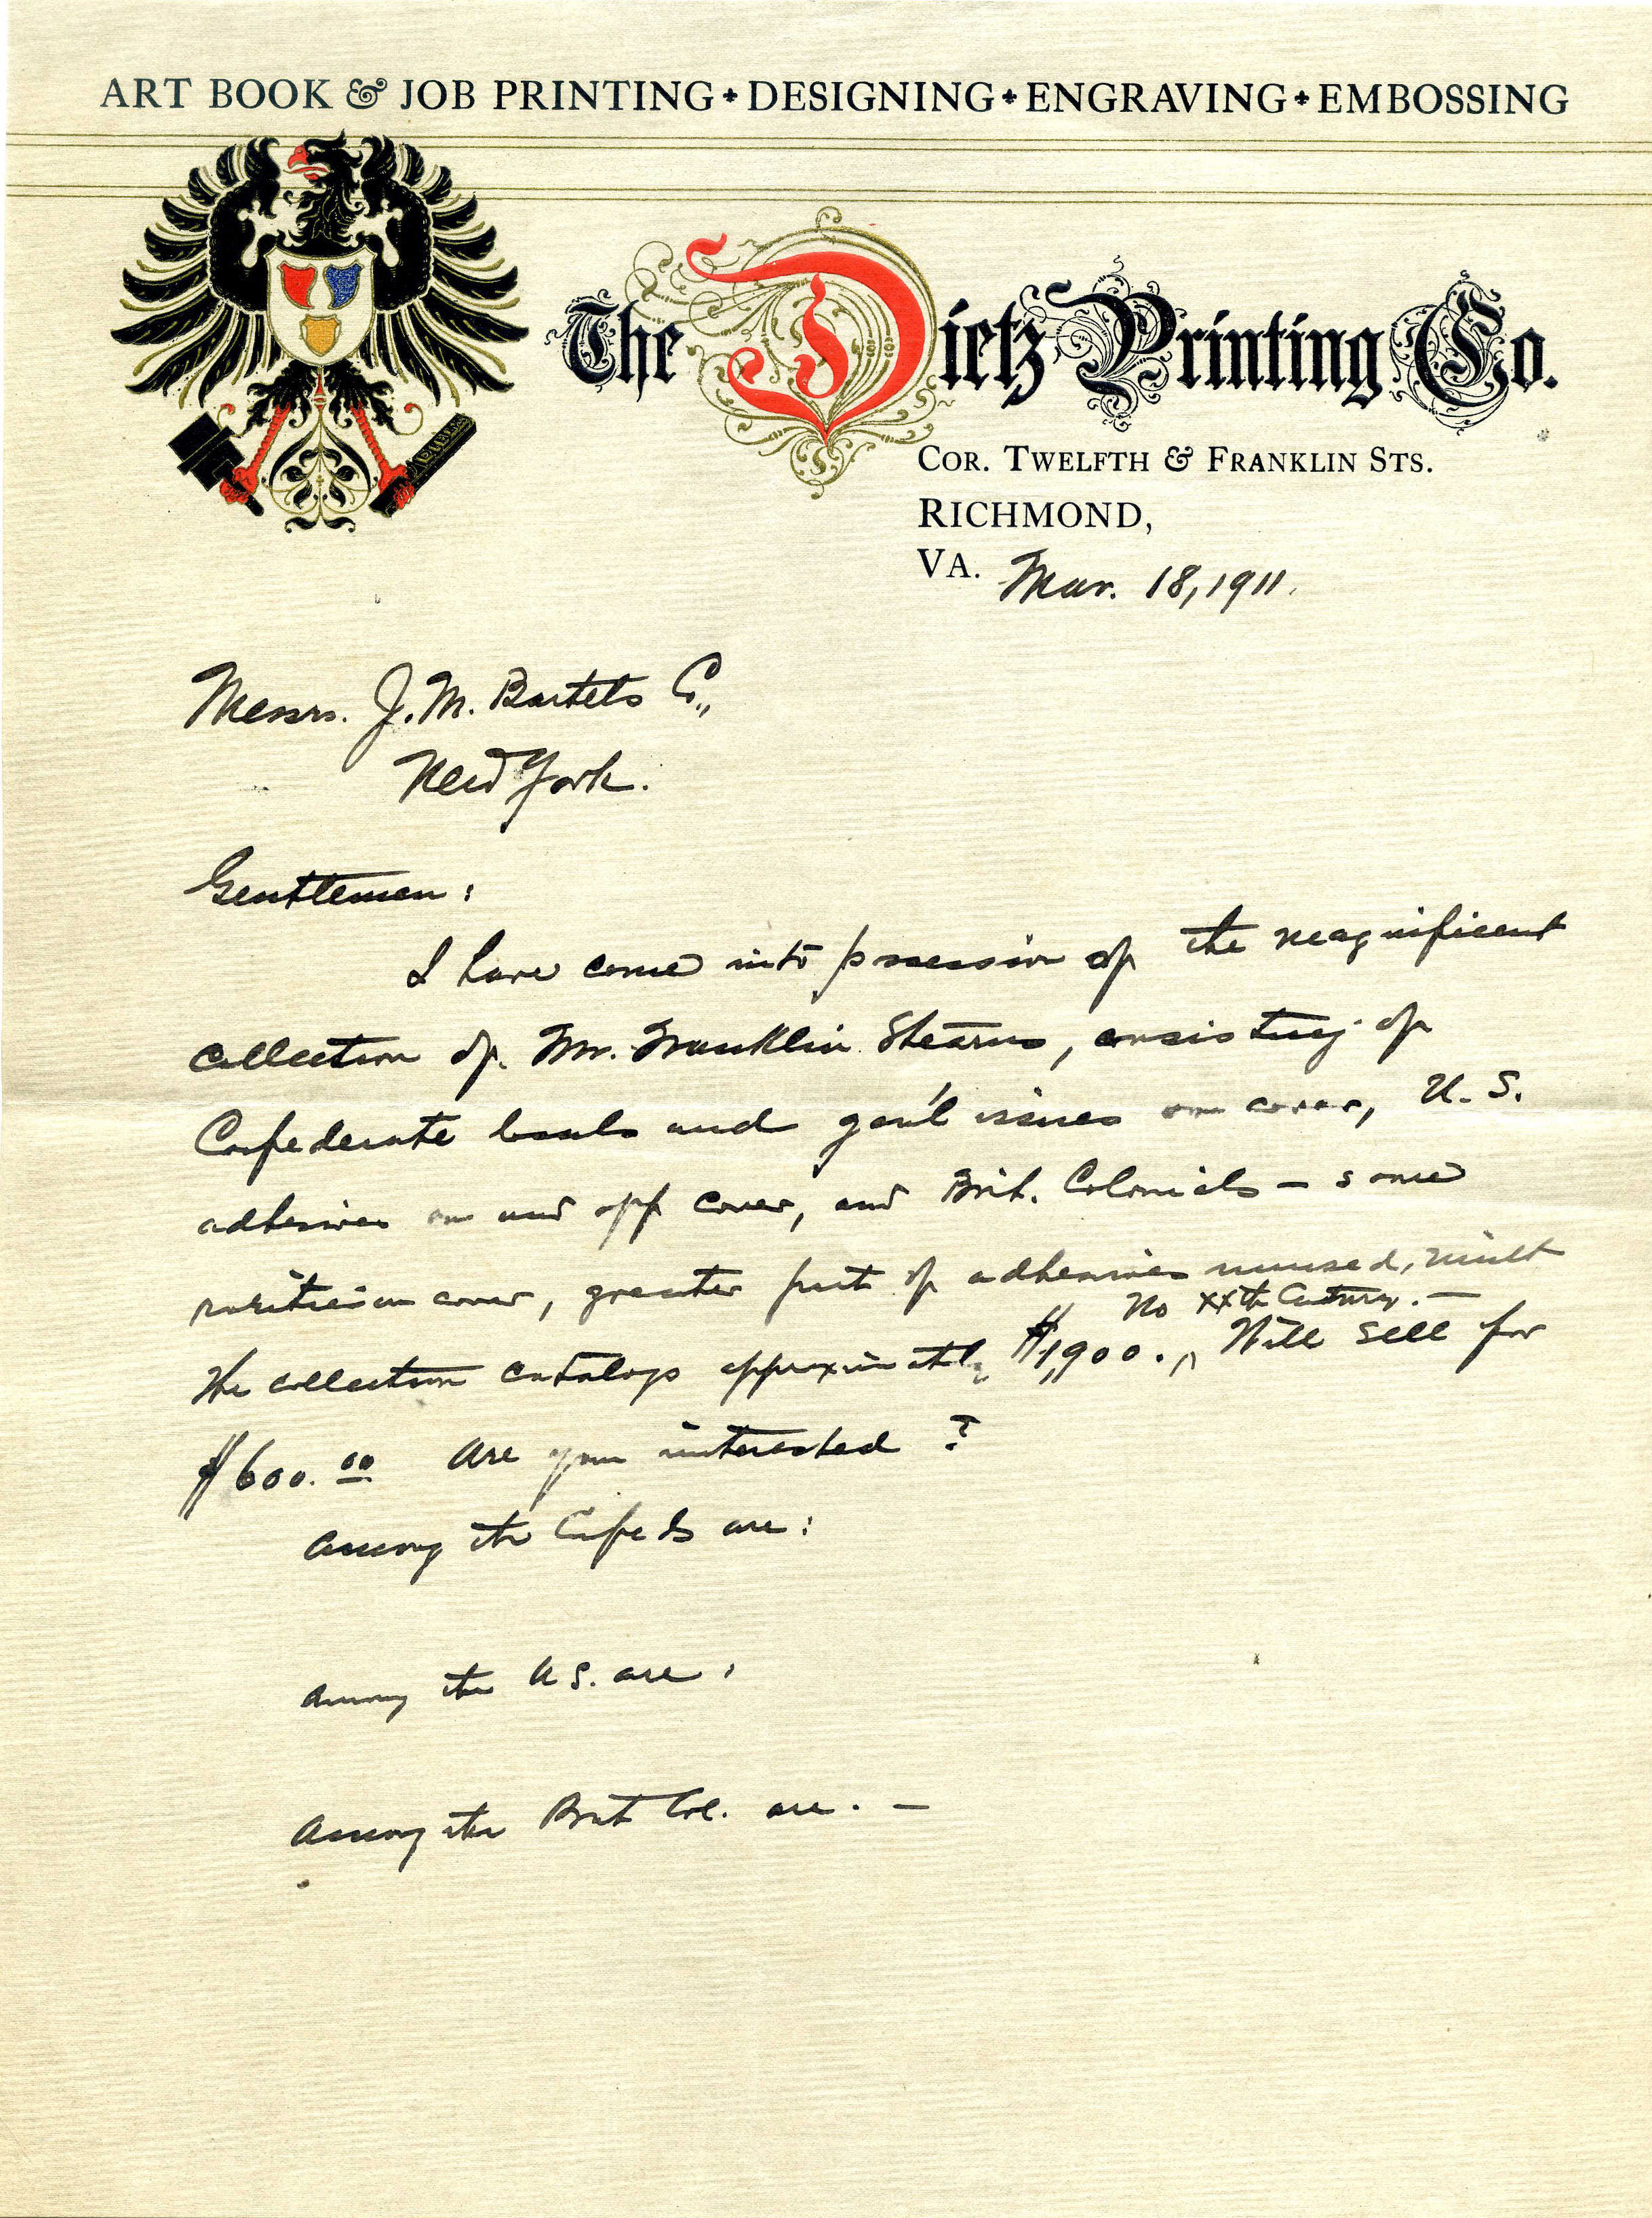 ART BOOK & JOB PRINTING + DESIGNING + ENGRAVING + EMBOSSING
The Dietz Printing Co.
COR. TWELFTH & FRANKLIN STS.
RICHMOND,
VA. Mar. 18, 1911.
Messrs. J. M. Bartels Co.,
New York.
Gentlemen:
I have come into possession of the magnificent
collection of Mr. Franklin Stearns, consisting of
Confederate locals and gen'l issues on cover, U.S.
adhesives on and off cover, and Brit. Colonials – some
rarities on cover, greater part of adhesives unused, mint
No XXth Century. —
The collection catalogs approximately $1,900. ^ Will sell for
$600.00 Are you interested?
Among the Confeds are:
Among the U.S. are:
Among the Brit Col. are. —